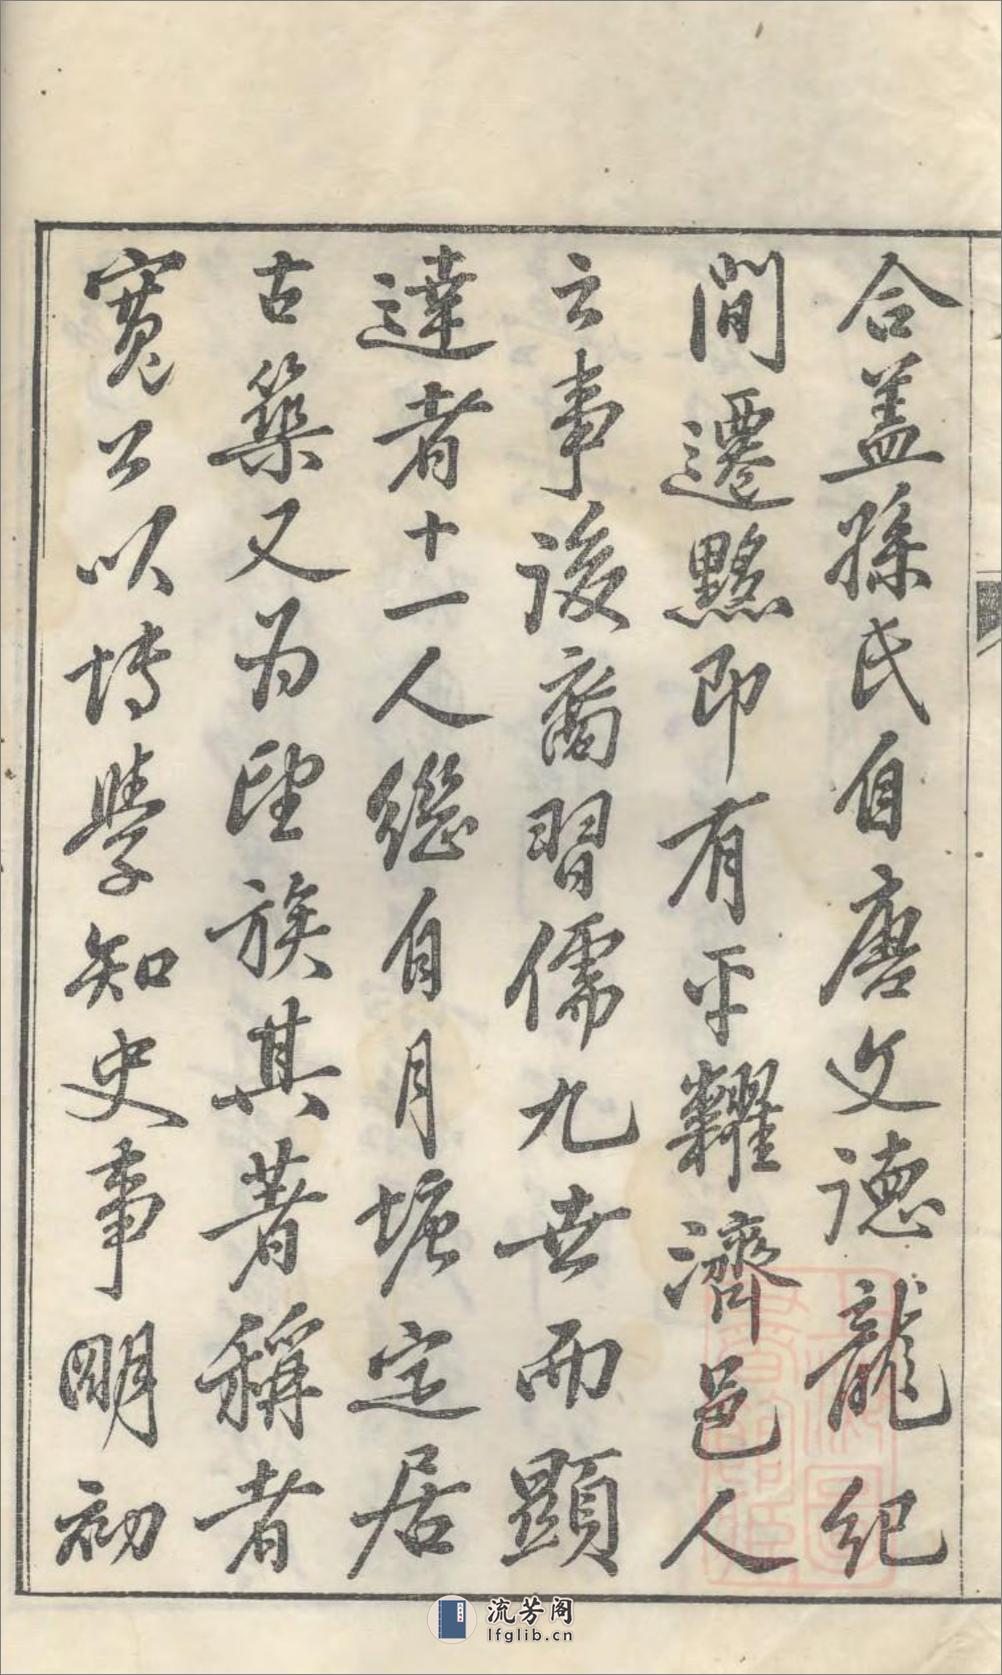 合盖孫氏自唐文德龍紀
間遷黟即有平糶濟邑人
之事後裔習儒九世而顯
達者十一人繼自月塘定居
古築又为望族其著稱者
寛公以博學知史事明初
流芳阁
lfglib.cn